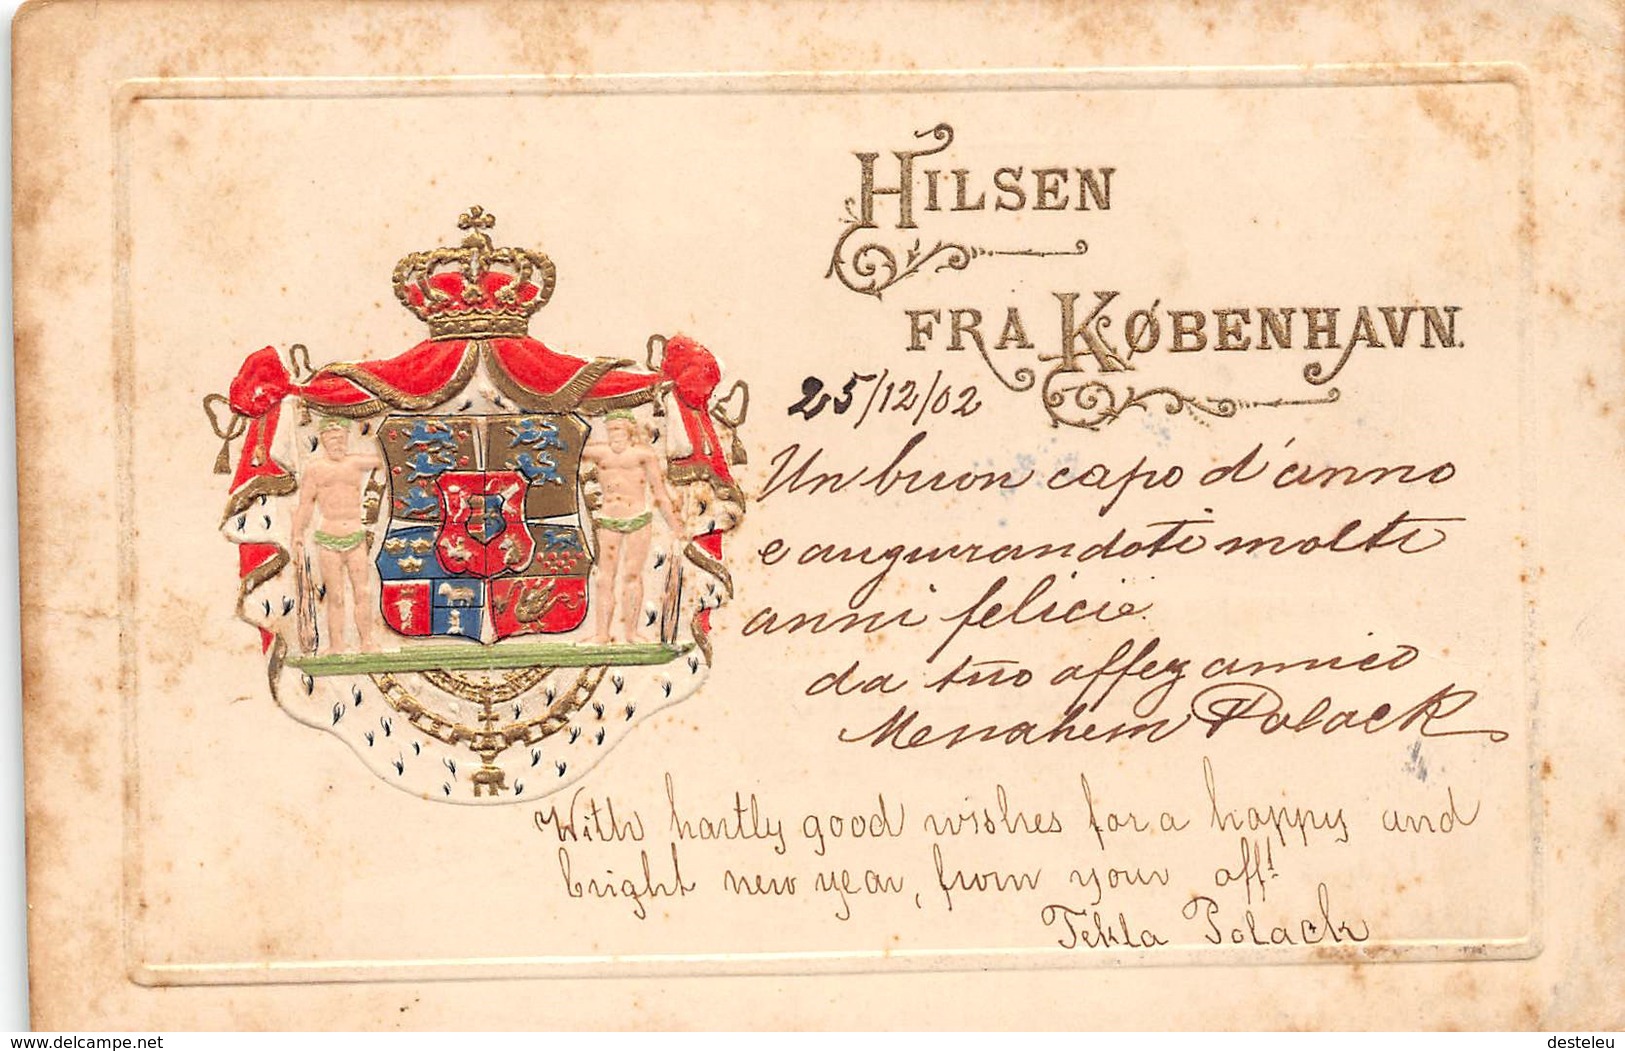 HILSEN
FRA KØBENHAVN.
25/12/02
Un buon capo d'anno
e augurandoti molti
anni felicie.
da tuo affez amico
Menahem Polack
With hartly good wishes for a happy and
bright new year, from your aff!
Tekla Polack
www.delcampe.net
desteleu